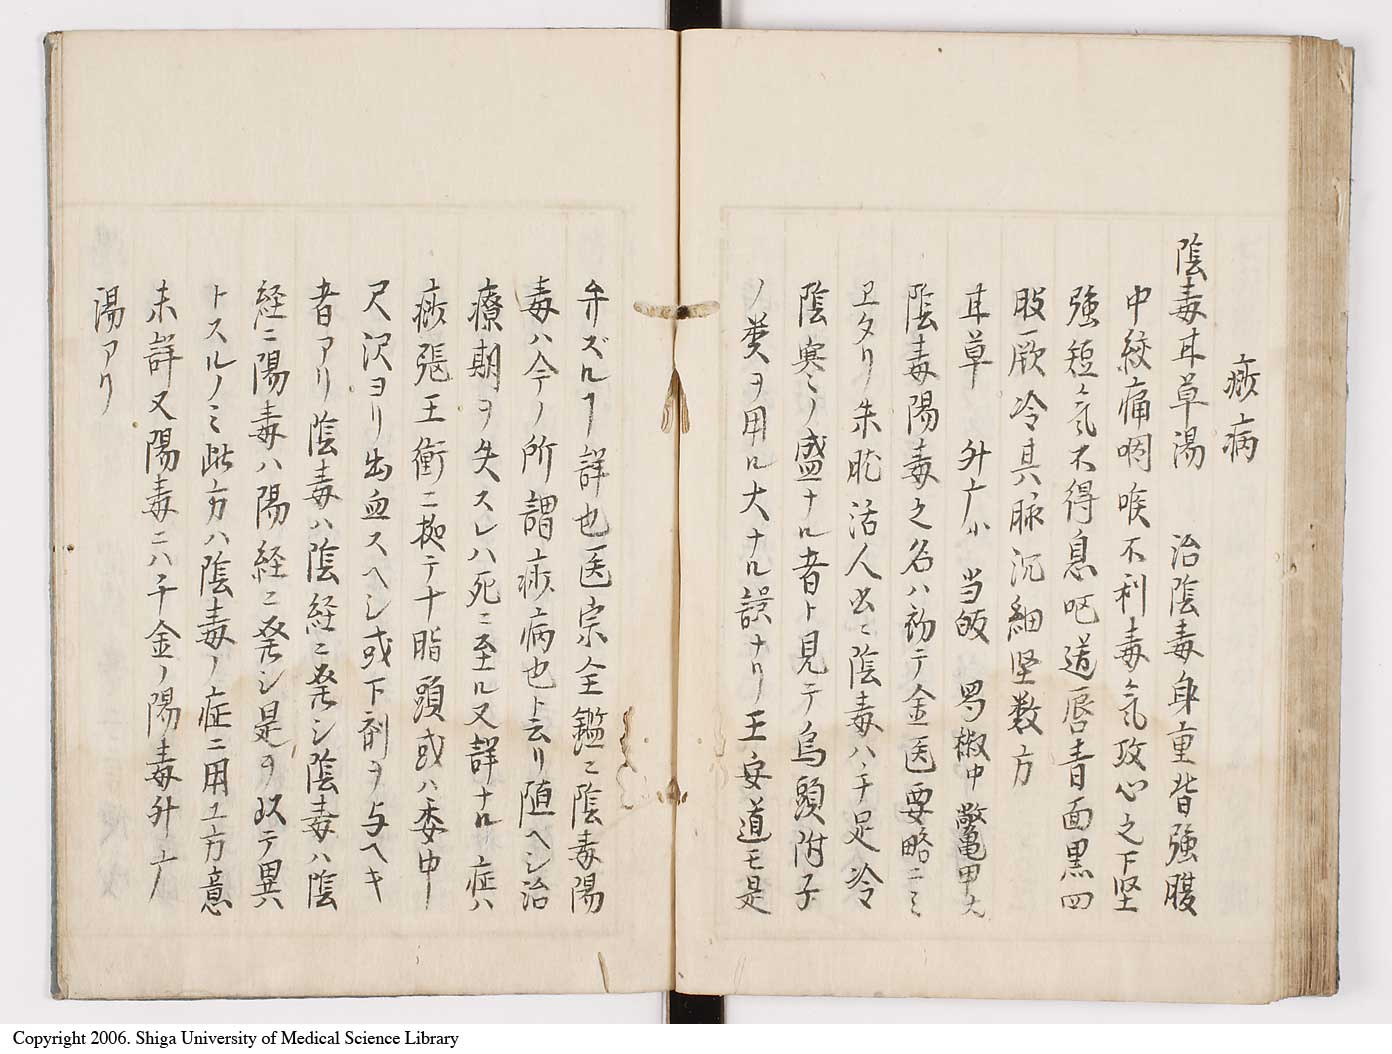 痧病
陰毒甘草湯　治陰毒身重背強腹
中絞痛咽喉不利毒気攻心之下坚
強短気不得息呕逆唇青面黒四
肢厥冷其脉沉細堅数方
甘草　升广小　当皈　蜀椒中　鱉甲大
陰毒陽毒之名ハ初テ金医要略ニミ
ヱタリ朱肱活人出ニ陰毒ハ手足冷
陰寒ミノ盛ナル者ト見テ烏頭附子
ノ類ヲ用ル大ナル誤ナリ王安道モ是
弁ズルヿ詳也医宗全鑑ニ陰毒陽
毒ハ今ノ所謂痧病也ト云リ随ヘシ治
療期ヲ失スレハ死ニ至ル又詳ナル症ハ
痧張王衡ニ拠テ十脂頭或ハ委中
尺沢ヨリ出血スヘシ或下剤ヲ与ヘキ
者アリ陰毒ハ陰経ニ発シ陰毒ハ陰
経ニ陽毒ハ陽経ニ発シ是ヲ以テ異
トスルノミ此方ハ陰毒ノ症ニ用ユ方意
未詳又陽毒ニハ千金ノ陽毒升广
湯アリ
Copyright 2006. Shiga University of Medical Science Library